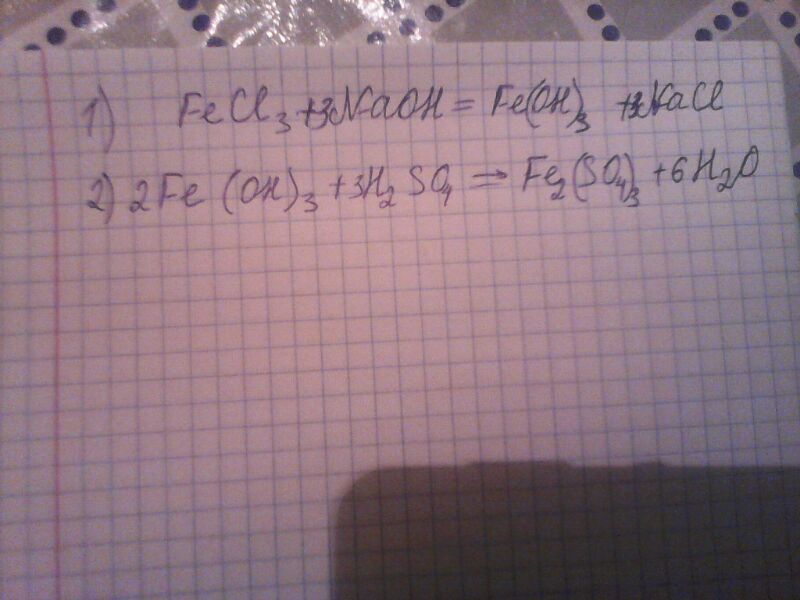 1) FeCl₃ + 3NaOH = Fe(OH)₃ + 3NaCl
2) 2Fe(OH)₃ + 3H₂SO₄ = Fe₂(SO₄)₃ + 6H₂O